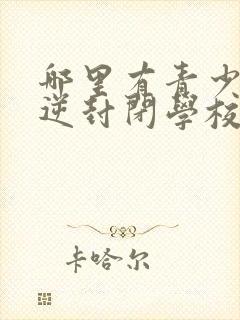 哪里有青少
逆封闭學校
卡哈尔